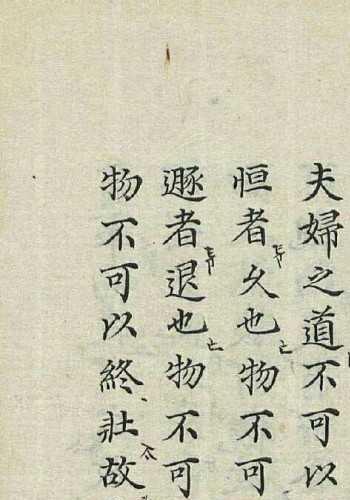 夫婦之道不可以
恒者久也物不可
遯者退也物不可
物不可以終壯故